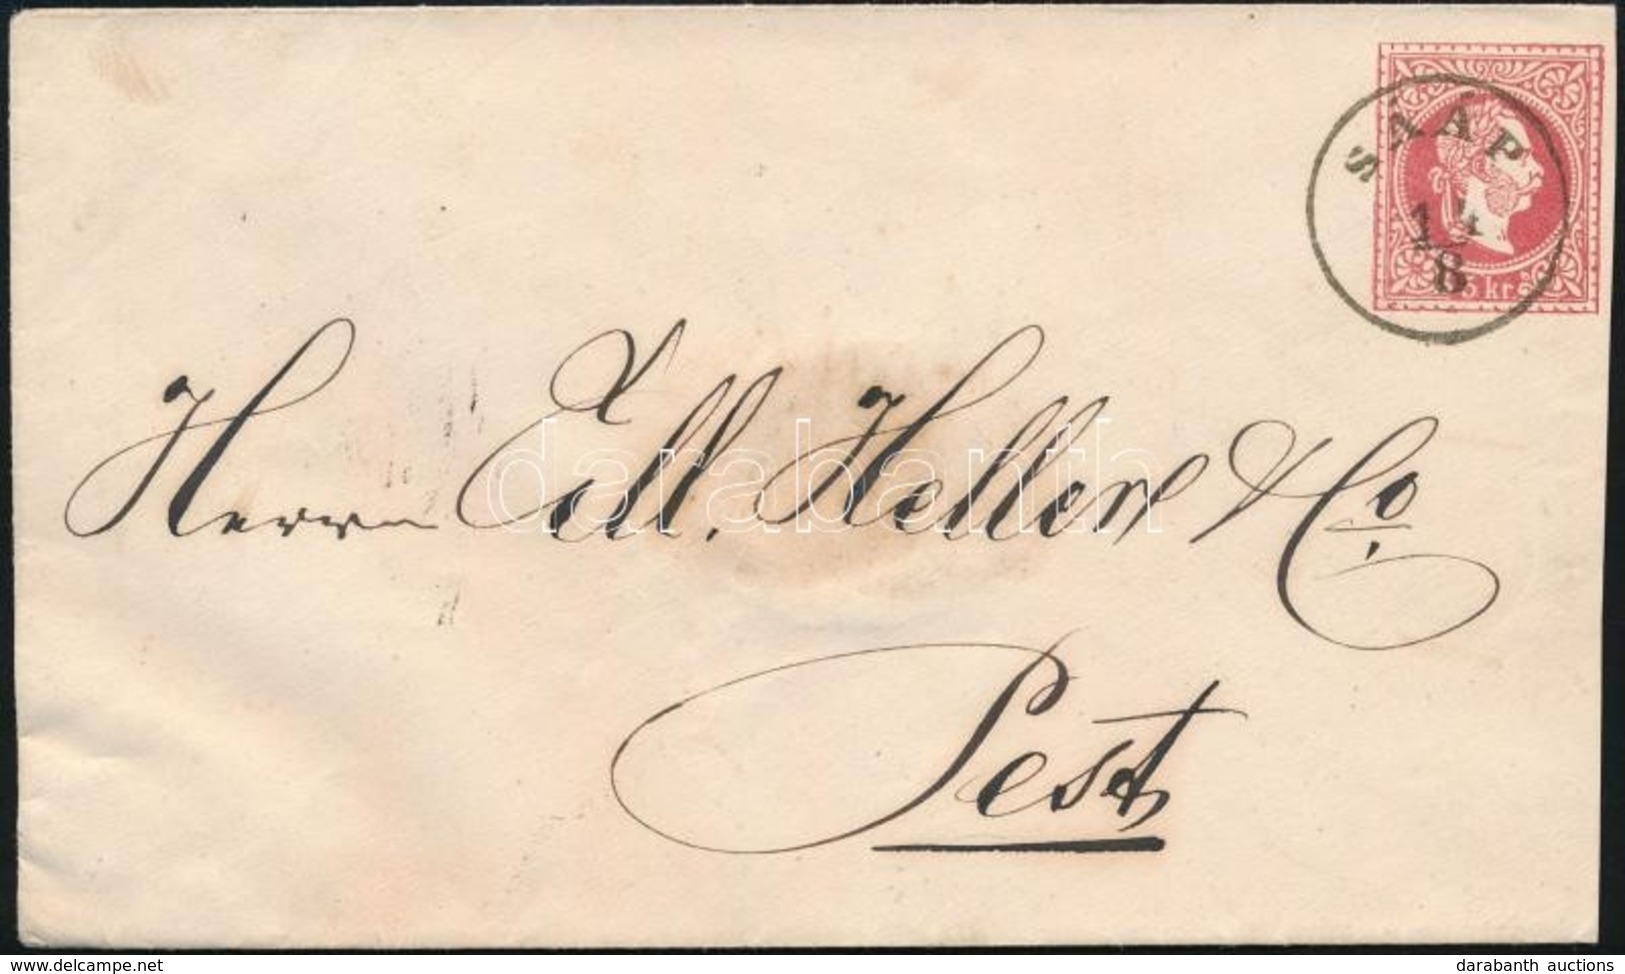 SÁÁP
14
8
5 kr.
Herrn Edl. Heller & Co,
Pest
darabanth
darabanth auctions
delcampe.net